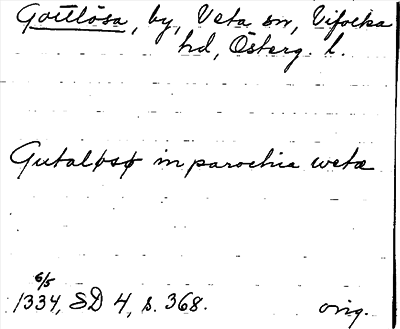 Gottlösa, by, Veta sn, Vifolka
hd, Österg. l.
Gutaløsø in parochia wetæ
6/5
1334, SD 4, s. 368. orig.